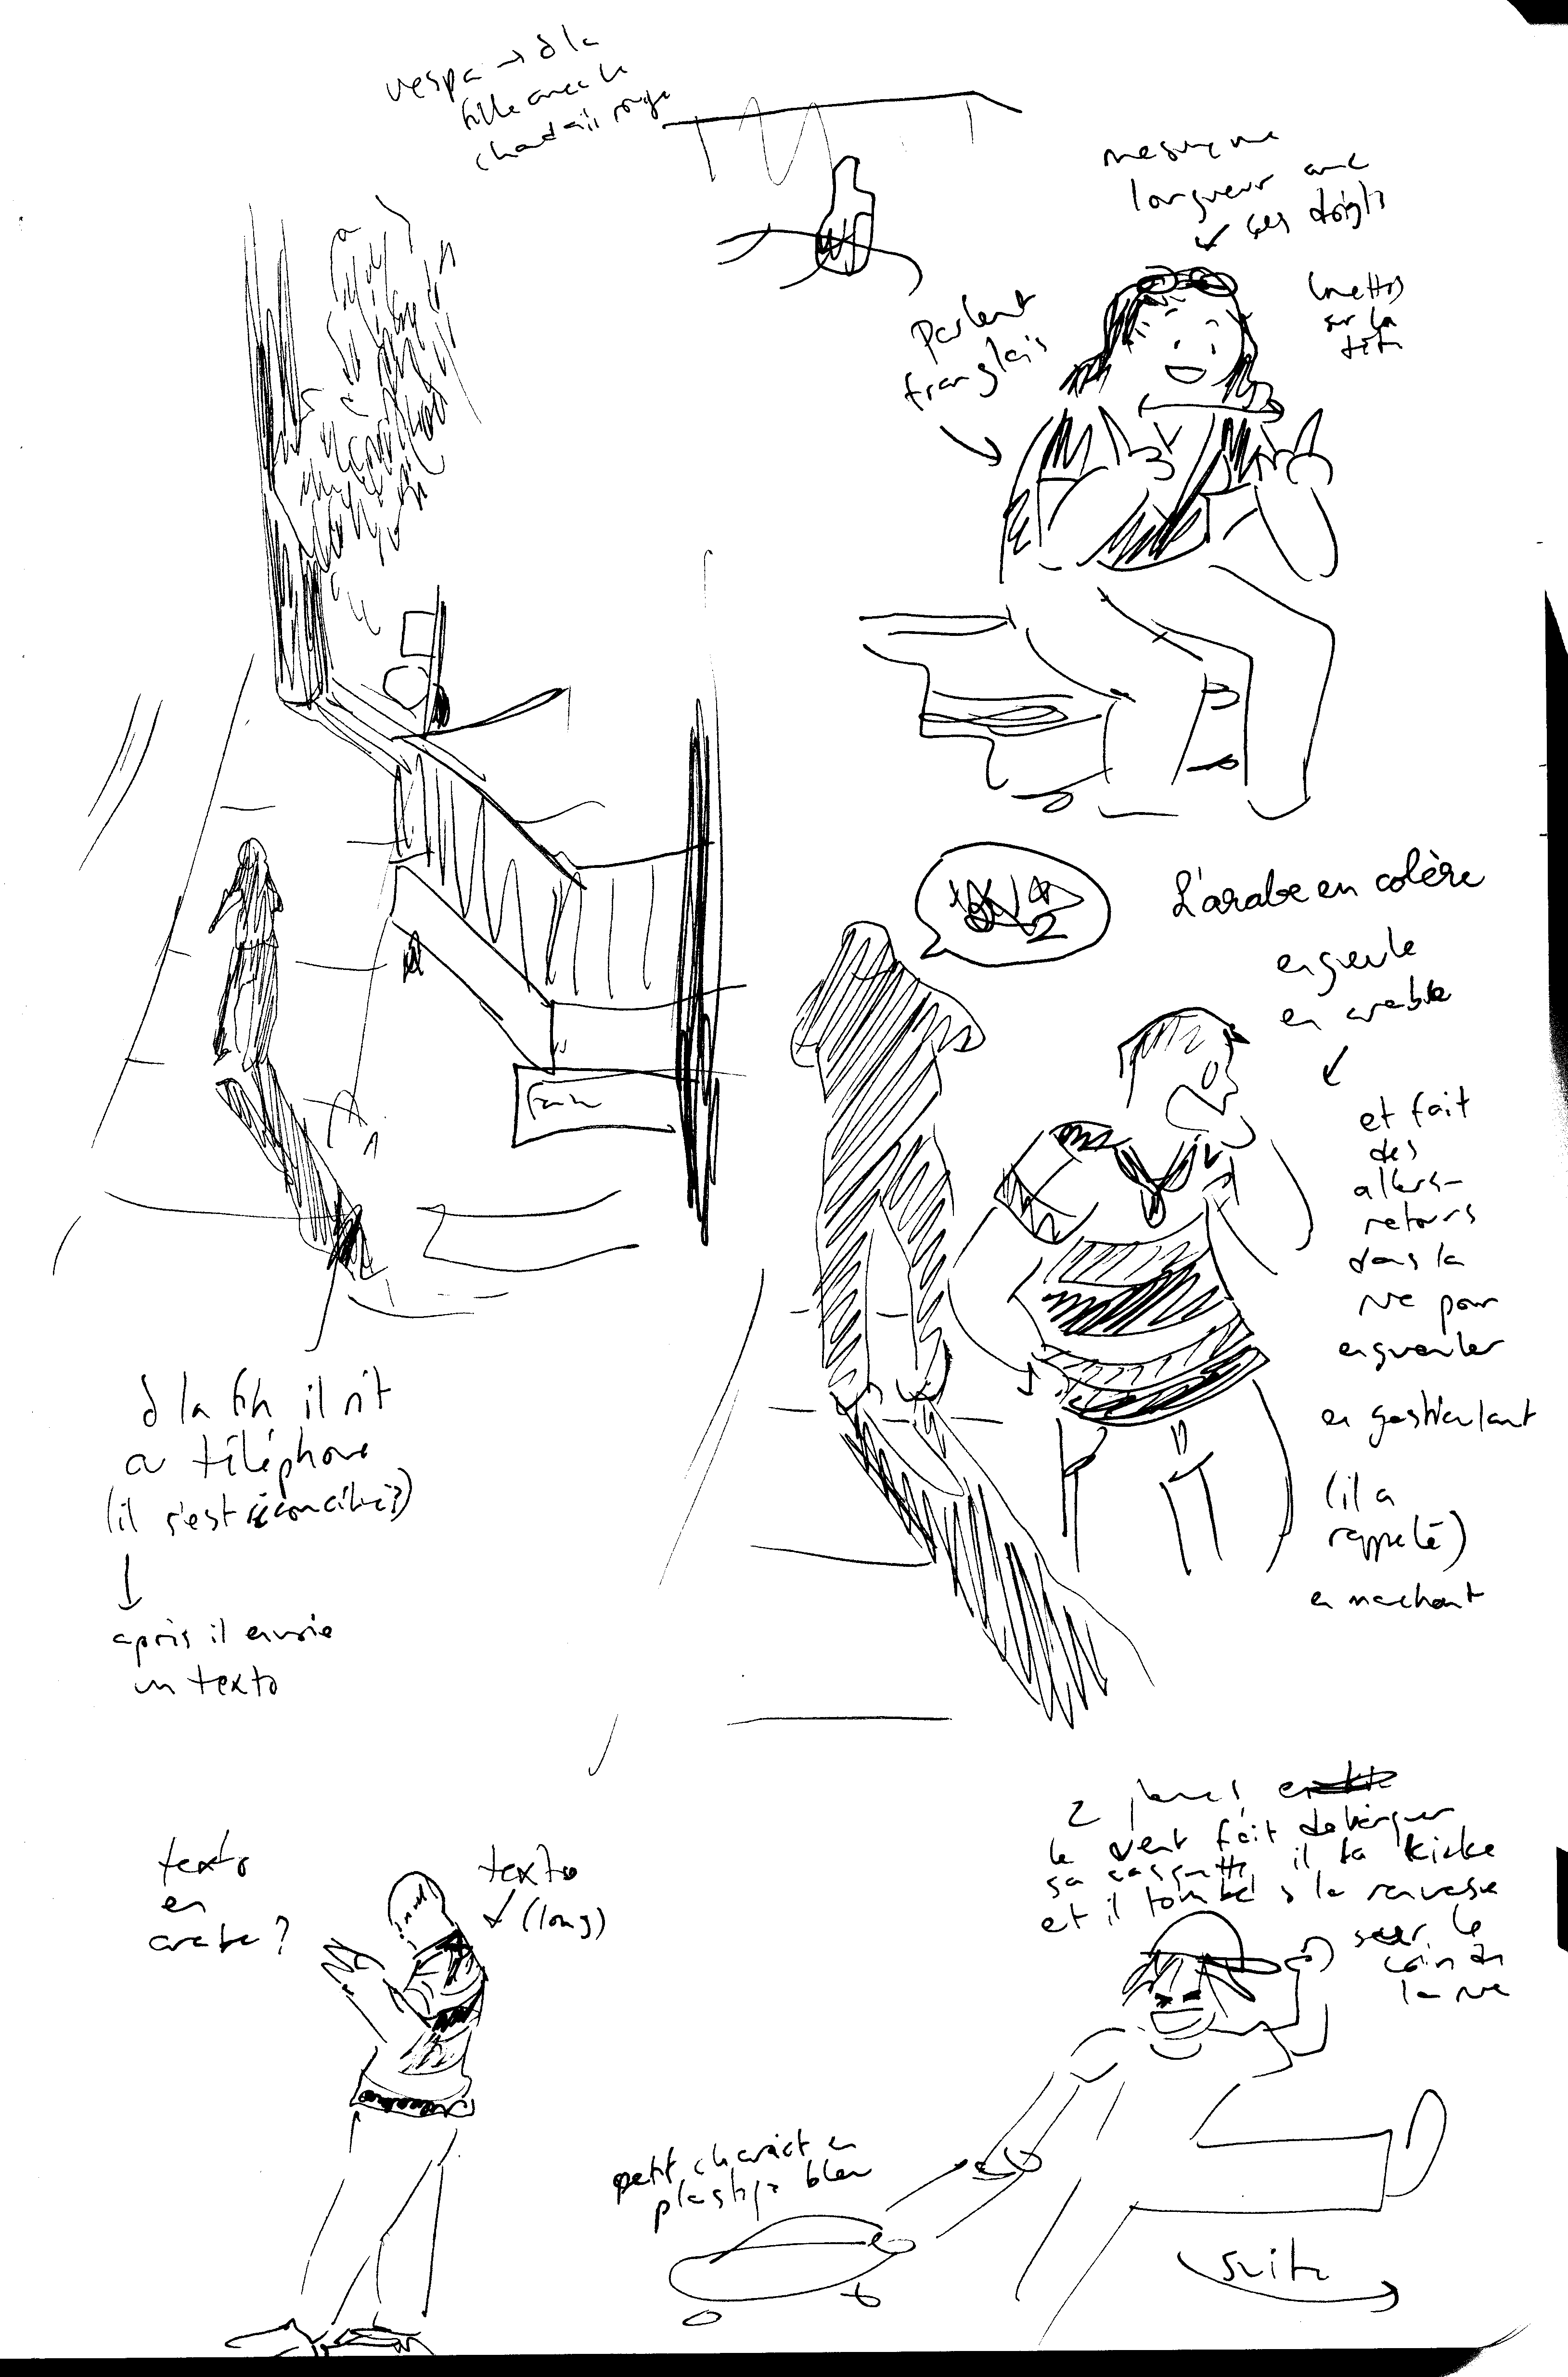 vespa → à la
fille avec le
chandail rouge
mesure une
longueur avec
ses doigts
lunettes
sur la
tête
Parlent
franglais
L'arabe en colère
engueule
en arabe
et fait
des
allers-
retours
dans la
rue pour
engueuler
en gesticulant
(il a
rappelé)
en marchant
à la fin il rit
au téléphone
(il s'est réconcilié?)
après il envoie
un texto
texto
en
arabe?
texto
(long)
2 jeunes
le vent fait
sa casquette, il la kicke
et il tombe à la renverse
sur le
coin de
la rue
petit chariot en
plastique bleu
suite